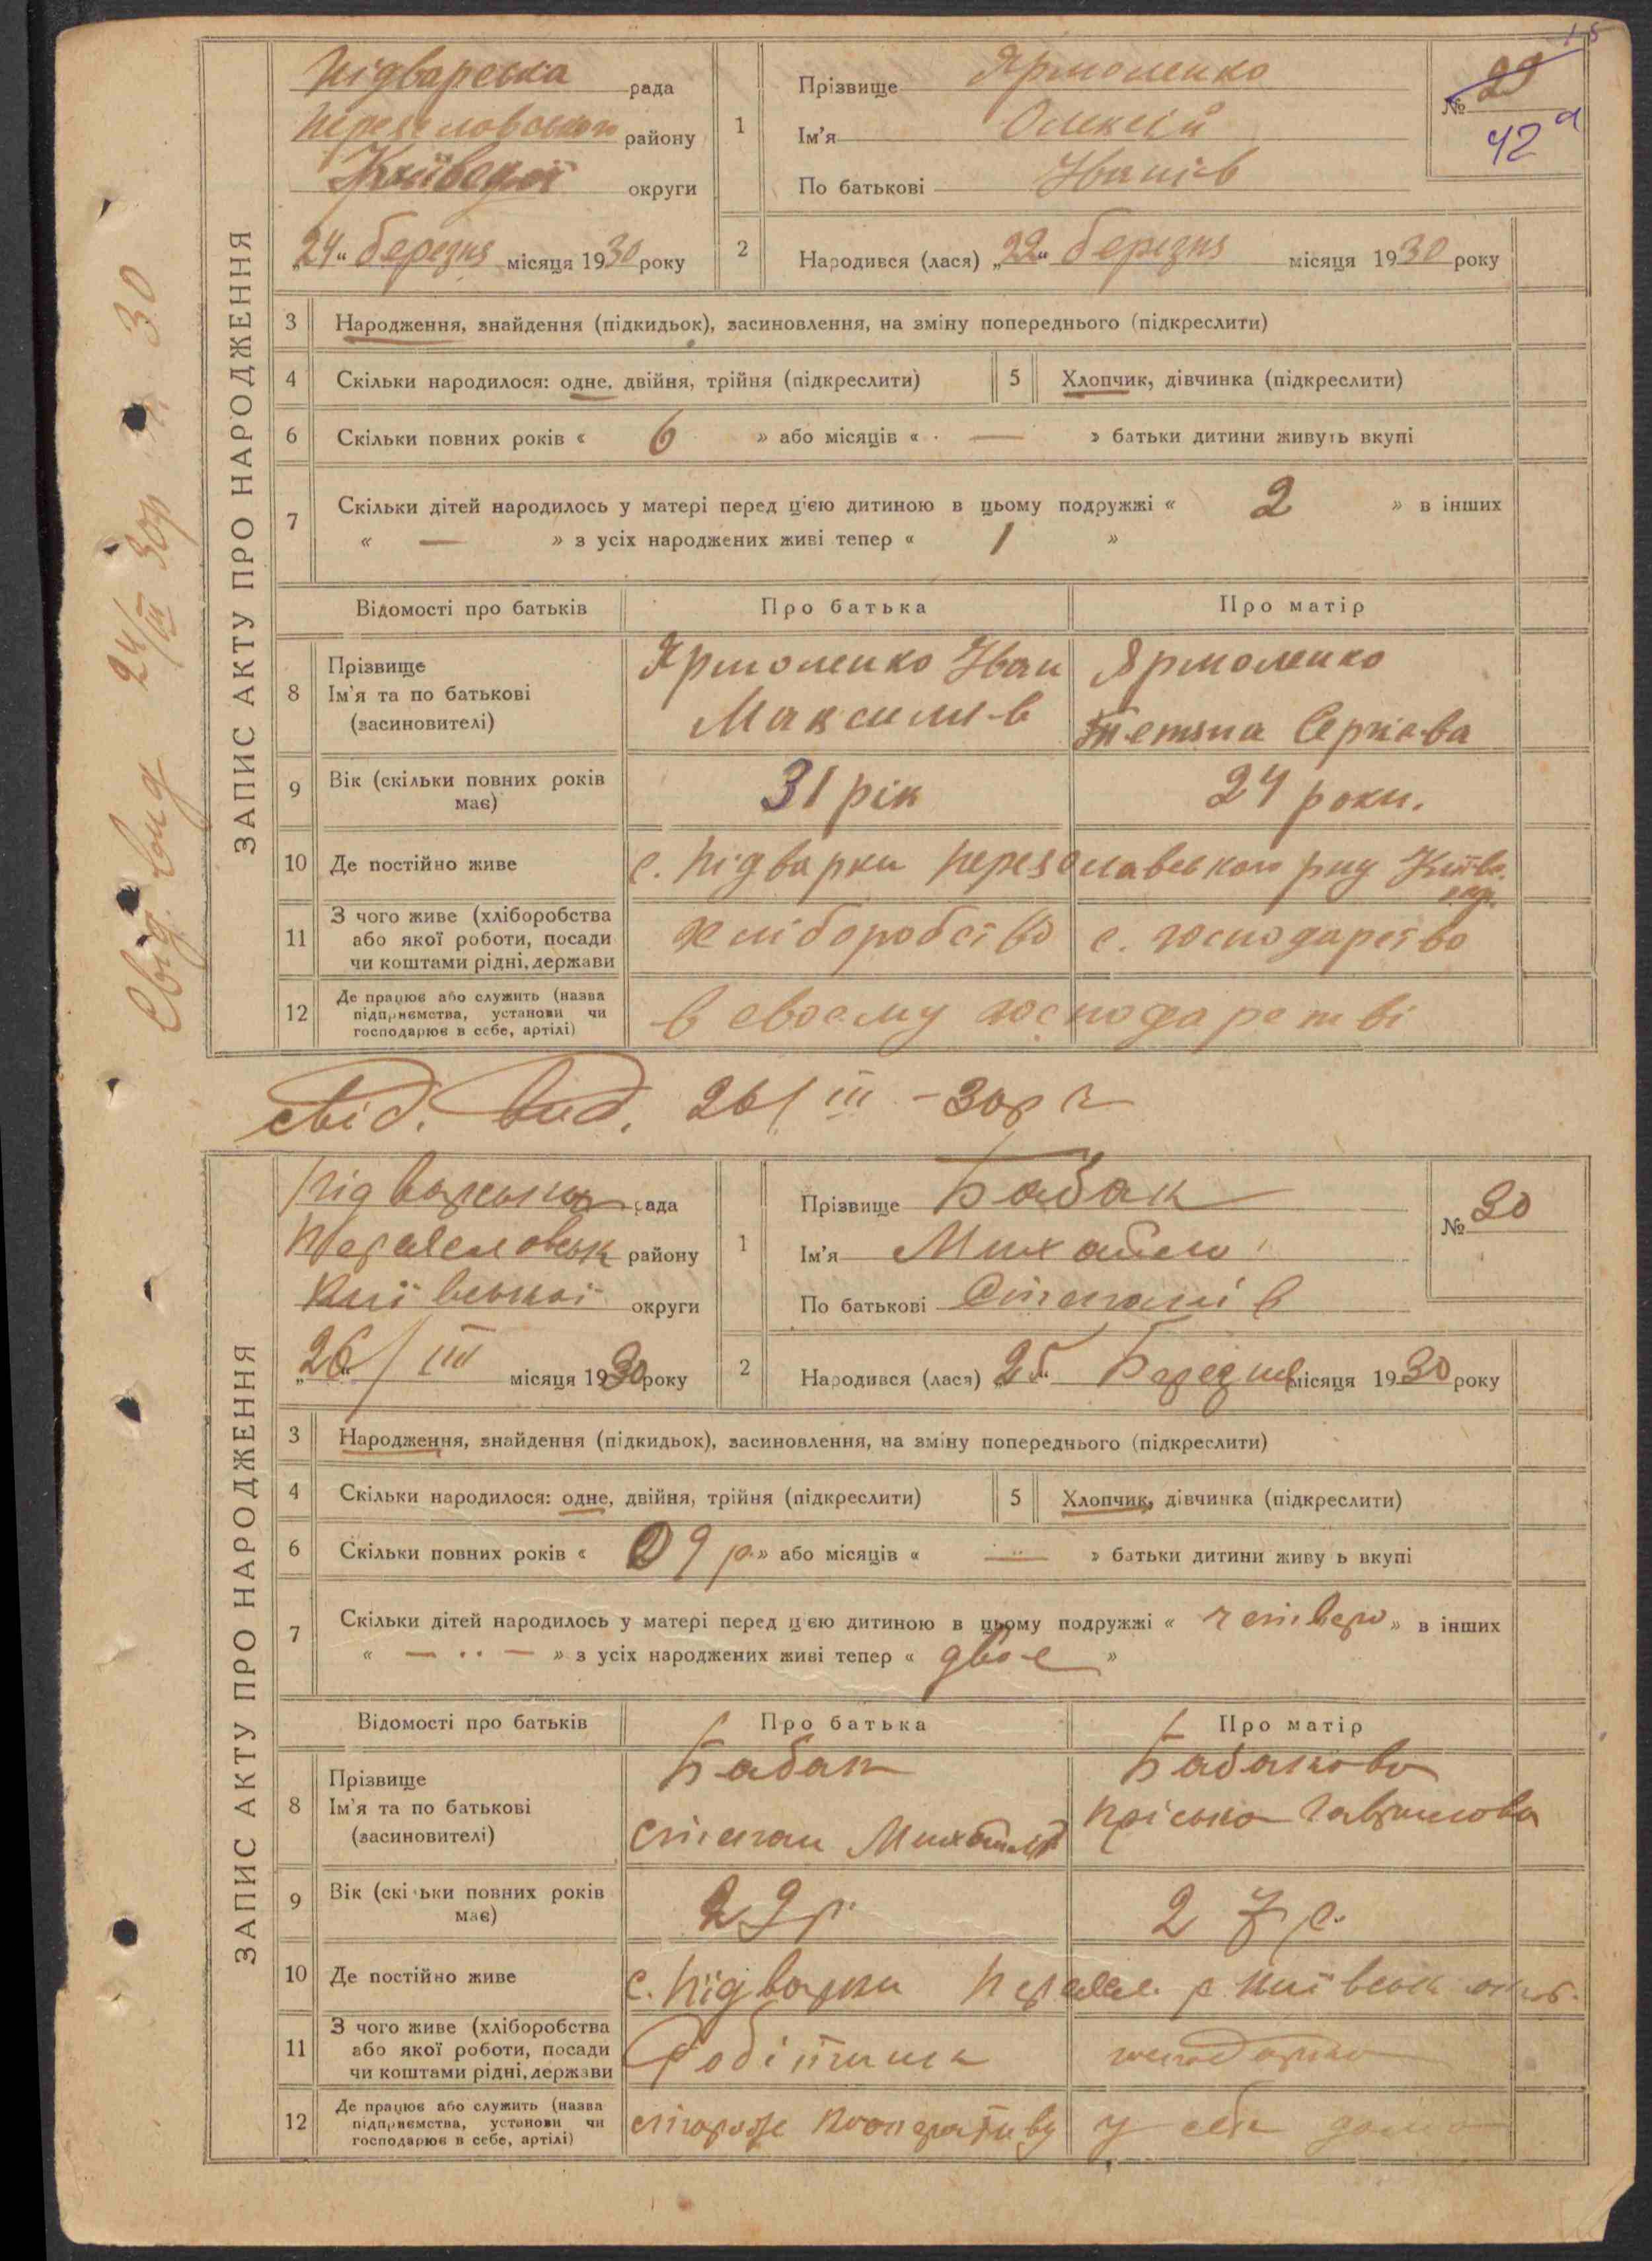 15
Підварська рада
Переяславського району
Київської округи
„24“ березня місяця 1930 року
1
Прізвище Ярмоленко
Ім’я Олексій
По батькові Іванів
№ 29
42а
2
Народився (лася) „22“ березня місяця 1930 року
ЗАПИС АКТУ ПРО НАРОДЖЕННЯ
3 Народження, знайдення (підкидьок), засиновлення, на зміну попереднього (підкреслити)
4 Скільки народилося: одне, двійня, трійня (підкреслити) 5 Хлопчик, дівчинка (підкреслити)
6 Скільки повних років « 6 » або місяців « — » батьки дитини живуть вкупі
7 Скільки дітей народилось у матері перед цією дитиною в цьому подружжі « 2 » в інших
« — » з усіх народжених живі тепер « 1 »
Відомості про батьків Про батька Про матір
8 Прізвище
Ім’я та по батькові
(засиновителі)
Ярмоленко Іван
Максимів
Ярмоленко
Тетяна Сергієва
9 Вік (скільки повних років
має)
31 рік
24 роки.
10 Де постійно живе
с. Підварки Переяславського р-ну Київс. окр.
11 З чого живе (хліборобства
або якої роботи, посади
чи коштами рідні, держави
хліборобство
с. господарство
12 Де працює або служить (назва
підприємства, установи чи
господарює в себе, артілі)
в своєму господарстві
Свід. вид. 24/III 30р
свід. вид. 26/III – 30р
Підварська рада
Переяславськ району
Київської округи
„26“/III місяця 1930 року
1
Прізвище Бабак
Ім’я Михайло
По батькові Степанів
№ 30
2
Народився (лася) „25“ Березня місяця 1930 року
ЗАПИС АКТУ ПРО НАРОДЖЕННЯ
3 Народження, знайдення (підкидьок), засиновлення, на зміну попереднього (підкреслити)
4 Скільки народилося: одне, двійня, трійня (підкреслити) 5 Хлопчик, дівчинка (підкреслити)
6 Скільки повних років « 9 р. » або місяців « — » батьки дитини живу ь вкупі
7 Скільки дітей народилось у матері перед цією дитиною в цьому подружжі « четверо » в інших
« — ·· — » з усіх народжених живі тепер « двоє »
Відомості про батьків Про батька Про матір
8 Прізвище
Ім’я та по батькові
(засиновителі)
Бабак
Степан Михайлов
Бабакова
Пріська Гаврилова
9 Вік (скільки повних років
має)
29 р.
27 р.
10 Де постійно живе
с. Підварки Переясл. р Київськ окр.
11 З чого живе (хліборобства
або якої роботи, посади
чи коштами рідні, держави
Робітник
господарка
12 Де працює або служить (назва
підприємства, установи чи
господарює в себе, артілі)
сторож кооперативу
у себе дома